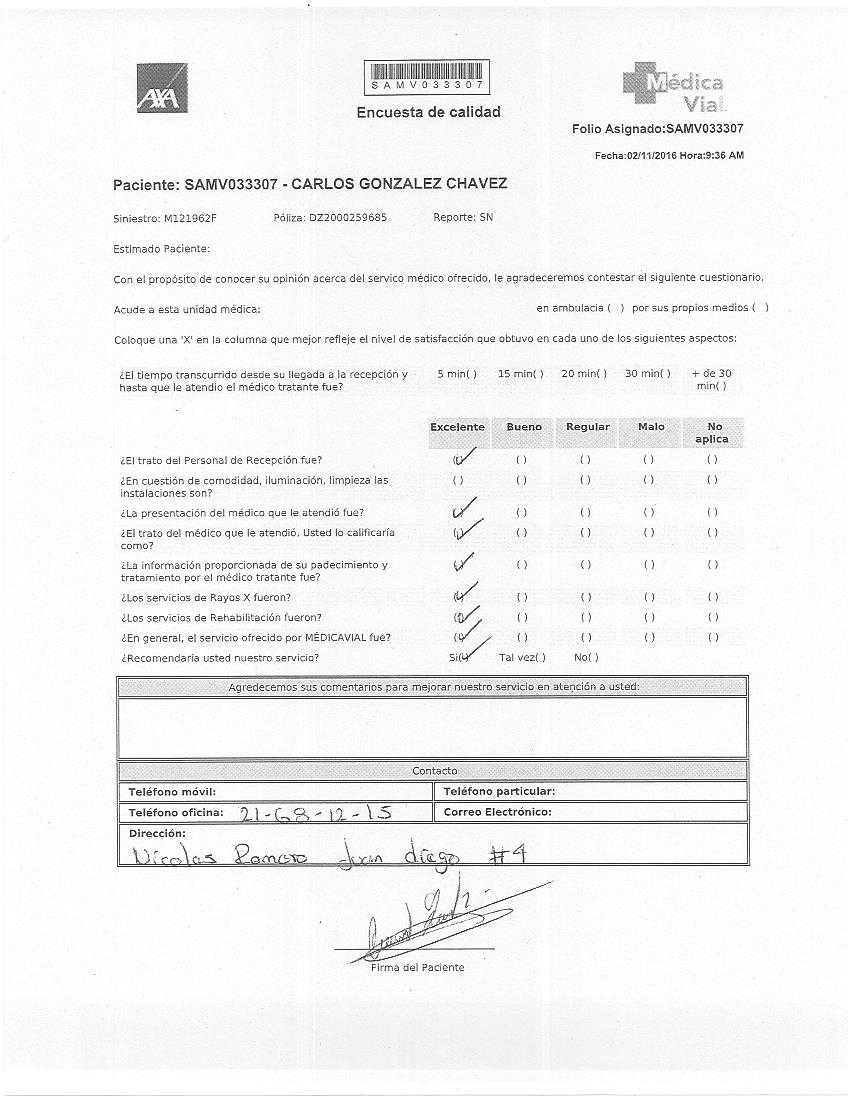 AXA
SAMV033307
Encuesta de calidad
Médica
Vial
Folio Asignado:SAMV033307
Fecha:02/11/2016 Hora:9:36 AM
Paciente: SAMV033307 - CARLOS GONZALEZ CHAVEZ
Siniestro: M121962F Póliza: DZ2000259685 Reporte: SN
Estimado Paciente:
Con el propósito de conocer su opinión acerca del servico médico ofrecido, le agradeceremos contestar el siguiente cuestionario.
Acude a esta unidad médica: en ambulacia ( ) por sus propios medios ( )
Coloque una 'X' en la columna que mejor refleje el nivel de satisfacción que obtuvo en cada uno de los siguientes aspectos:
¿El tiempo transcurrido desde su llegada a la recepción y 5 min( ) 15 min( ) 20 min( ) 30 min( ) + de 30
hasta que le atendio el médico tratante fue? min( )
Excelente Bueno Regular Malo No
aplica
¿El trato del Personal de Recepción fue? (✓) ( ) ( ) ( ) ( )
¿En cuestión de comodidad, iluminación, limpieza las ( ) ( ) ( ) ( ) ( )
instalaciones son?
¿La presentación del médico que le atendió fue? (✓) ( ) ( ) ( ) ( )
¿El trato del médico que le atendió. Usted lo calificaría (✓) ( ) ( ) ( ) ( )
como?
¿La información proporcionada de su padecimiento y (✓) ( ) ( ) ( ) ( )
tratamiento por el médico tratante fue?
¿Los servicios de Rayos X fueron? (✓) ( ) ( ) ( ) ( )
¿Los servicios de Rehabilitación fueron? (✓) ( ) ( ) ( ) ( )
¿En general, el servicio ofrecido por MÉDICAVIAL fue? (✓) ( ) ( ) ( ) ( )
¿Recomendaría usted nuestro servicio? Si(✓) Tal vez( ) No( )
Agredecemos sus comentarios para mejorar nuestro servicio en atención a usted:
Contacto
Teléfono móvil: Teléfono particular:
Teléfono oficina: 21-68-12-15 Correo Electrónico:
Dirección:
Nicolas Romero Juan diego #4
Firma del Paciente